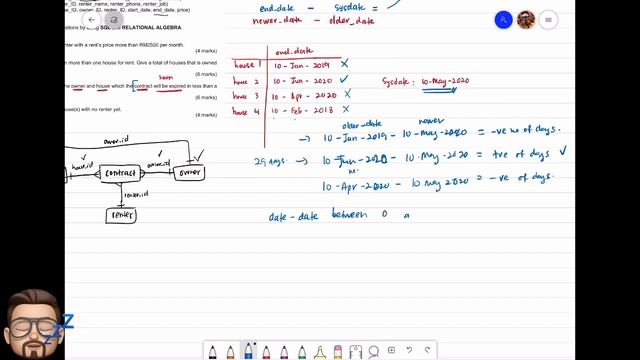 er_ID, renter_name, renter_phone, renter_job)
er_ID, owner_ID, renter_ID, start_date, end_date, price)
end-date - sysdate =
newer-date - older-date
estions by using SQL RELATIONAL ALGEBRA
enter with a rent's price more than RM2500 per month.
(4 marks)
n more than one house for rent. Give a total of houses that is owned
(6 marks)
soon
e owner and house which the contract will be expired in less than a
(6 marks)
use(s) with no renter yet.
(4 marks)
end-date
house 1 10-Jan-2019 X
house 2 10-Jun-2020 ✓
house 3 10-Apr-2020 X
house 4 10-Feb-2018 X
Sysdate: 10-May-2020
older-date newer
→ 10-Jan-2019 - 10-May-2020 = -ve no of days.
→ 10-Jun-2020 - 10-May-2020 = +ve of days ✓
10-Apr-2020 - 10 May 2020 = -ve of days.
date-date between 0 a
owner.id
house.id
contract
owner.id
owner
renter.id
renter